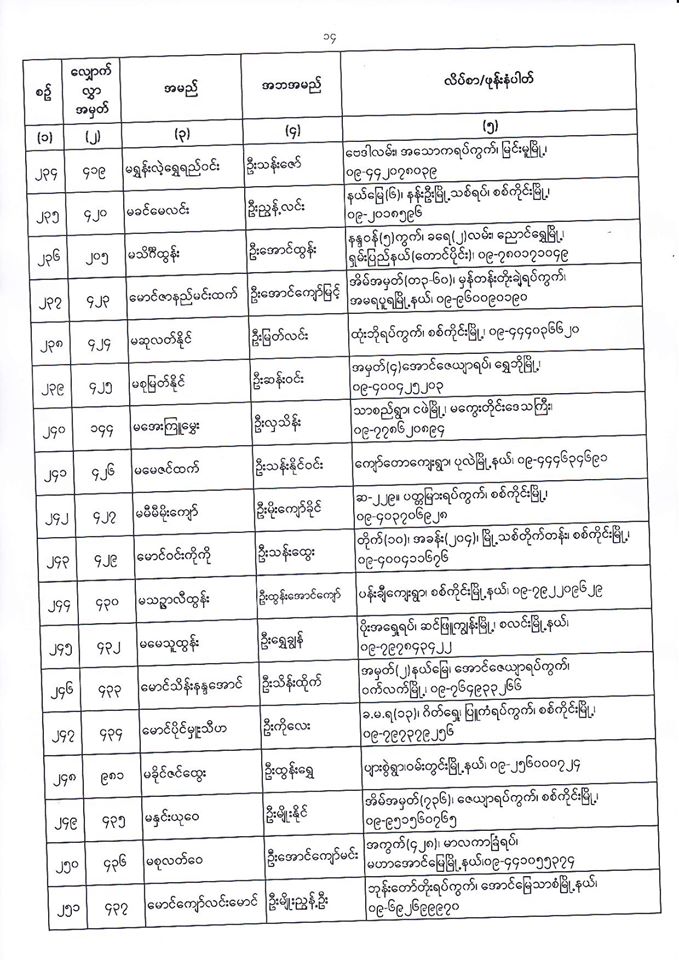 ၁၄
စဉ် လျှောက်လွှာအမှတ် အမည် အဘအမည် လိပ်စာ/ဖုန်းနံပါတ်
(၁) (၂) (၃) (၄) (၅)
၂၃၄ ၄၁၉ မရွှန်းလဲ့ရွှေရည်ဝင်း ဦးသန်းဇော် ဗေဒါလမ်း၊ အသောကရပ်ကွက်၊ မြင်းမူမြို့၊
၀၉-၄၄၂၀၇၈၀၃၉
၂၃၅ ၄၂၀ မခင်မေလင်း ဦးညွန့်လင်း နယ်မြေ(၆)၊ နန်းဦးမြို့သစ်ရပ်၊ စစ်ကိုင်းမြို့၊
၀၉-၂၀၁၈၅၉၆
၂၃၆ ၂၀၅ မသိင်္ဂီထွန်း ဦးအောင်ထွန်း နန္ဒဝန်(၅)ကွက်၊ ခရေ(၂)လမ်း၊ ညောင်ရွှေမြို့၊
ရှမ်းပြည်နယ်(တောင်ပိုင်း)၊ ၀၉-၇၈၀၁၇၁၀၄၉
၂၃၇ ၄၂၃ မောင်ဇာနည်မင်းထက် ဦးအောင်ကျော်မြင့် အိမ်အမှတ်(တ၃-၆၀)၊ မှန်တန်းတိုးချဲ့ရပ်ကွက်၊
အမရပူရမြို့နယ်၊ ၀၉-၉၆၀၀၉၀၁၉၀
၂၃၈ ၄၂၄ မဆုလတ်နိုင် ဦးမြတ်လင်း ထုံးဘိုရပ်ကွက်၊ စစ်ကိုင်းမြို့၊ ၀၉-၄၄၄၀၃၆၆၂၀
၂၃၉ ၄၂၅ မစုမြတ်နိုင် ဦးဆန်းဝင်း အမှတ်(၄)အောင်ဇေယျာရပ်၊ ရွှေဘိုမြို့၊
၀၉-၄၀၀၄၂၅၂၀၃
၂၄၀ ၁၄၄ မအေးကြူမွှေး ဦးလှသိန်း သာစည်ရွာ၊ ငဖဲမြို့၊ မကွေးတိုင်းဒေသကြီး၊
၀၉-၇၇၈၆၂၀၈၉၄
၂၄၁ ၄၂၆ မမေဇင်ထက် ဦးသန်းနိုင်ဝင်း ကျော်တောကျေးရွာ၊ ပုလဲမြို့နယ်၊ ၀၉-၄၄၄၆၃၄၆၉၁
၂၄၂ ၄၂၇ မမီမီမိုးကျော် ဦးမိုးကျော်ခိုင် ဆ-၂၂၉။ ပတ္တမြားရပ်ကွက်၊ စစ်ကိုင်းမြို့၊
၀၉-၄၀၃၇၀၆၉၂၈
၂၄၃ ၄၂၉ မောင်ဝင်းကိုကို ဦးသန်းထွေး တိုက်(၁၀)၊ အခန်း(၂၀၄)၊ မြို့သစ်တိုက်တန်း၊ စစ်ကိုင်းမြို့၊
၀၉-၄၀၀၄၁၁၆၇၆
၂၄၄ ၄၃၀ မသဉ္ဇာလီထွန်း ဦးထွန်းအောင်ကျော် ပန်းချီကျေးရွာ၊ စစ်ကိုင်းမြို့နယ်၊ ၀၉-၇၉၂၂၀၉၆၂၉
၂၄၅ ၄၃၂ မမေသူထွန်း ဦးရွှေချွန် ပိုးအရှေ့ရပ်၊ ဆင်ဖြူကျွန်းမြို့၊ စလင်းမြို့နယ်၊
၀၉-၇၉၇၈၄၃၄၂၂
၂၄၆ ၄၃၃ မောင်သိန်းနန္ဒအောင် ဦးသိန်းထိုက် အမှတ်(၂)နယ်မြေ၊ အောင်ဇေယျာရပ်ကွက်၊
ဝက်လက်မြို့၊ ၀၉-၇၆၄၉၃၃၂၆၆
၂၄၇ ၄၃၄ မောင်ပိုင်မှူးသီဟ ဦးကိုလေး ခ.မ.ရ(၁၃)၊ ဂိတ်ရှေ့၊ ပြူကံရပ်ကွက်၊ စစ်ကိုင်းမြို့၊
၀၉-၇၉၇၃၇၉၂၅၆
၂၄၈ ၉၈၁ မခိုင်ဇင်ထွေး ဦးထွန်းရွှေ ပျားစွဲရွာ၊ဝမ်းတွင်းမြို့နယ်၊ ၀၉-၂၅၆၀၀၀၇၂၄
၂၄၉ ၄၃၅ မနှင်းယုဝေ ဦးမျိုးနိုင် အိမ်အမှတ်(၇၃၆)၊ ဇေယျာရပ်ကွက်၊ စစ်ကိုင်းမြို့၊
၀၉-၉၅၁၅၆၀၇၆၅
၂၅၀ ၄၃၆ မစုလတ်ဝေ ဦးအောင်ကျော်မင်း အကွက်(၄၂၈)၊ မာလကာခြံရပ်၊
မဟာအောင်မြေမြို့နယ်၊၀၉-၄၄၁၀၅၅၃၇၄
၂၅၁ ၄၃၇ မောင်ကျော်လင်းမောင် ဦးမျိုးညွန့်ဦး ဘုန်းတော်တိုးရပ်ကွက်၊ အောင်မြေသာစံမြို့နယ်၊
၀၉-၆၉၂၆၉၉၉၇၀